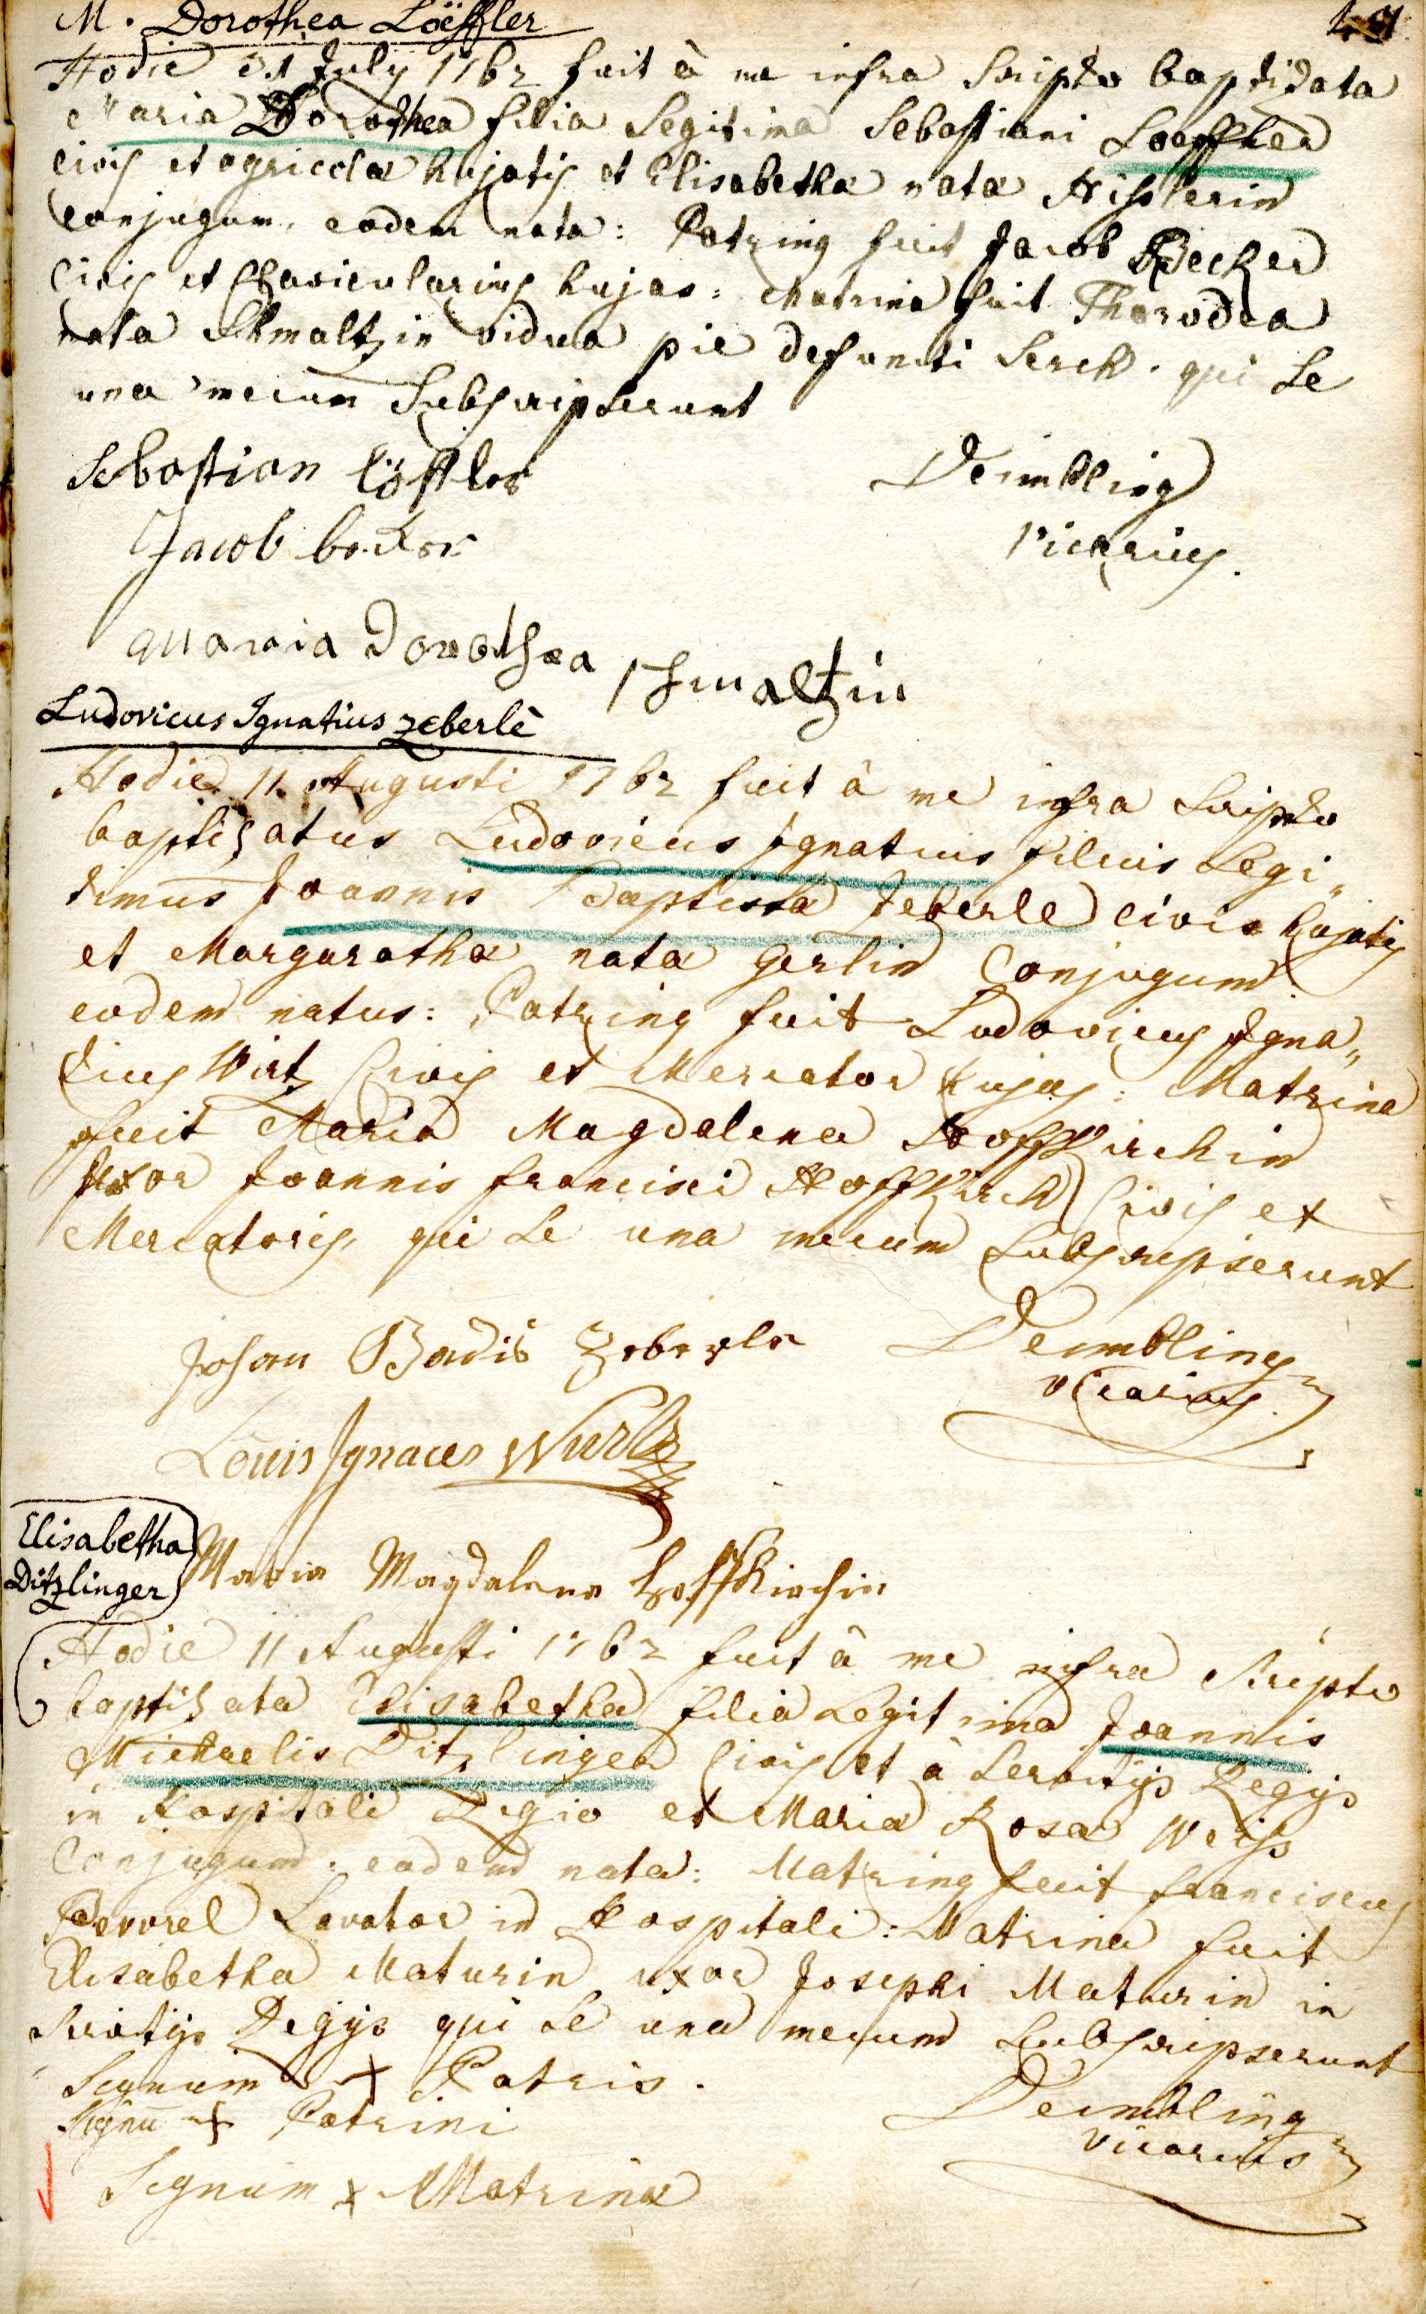 M. Dorothea Löeffler
49
Hodie 31 July 1762 fuit à me infra Scripto baptizata
Maria Dorothea filia Legitima Sebastiani Loeffler
civis et agricola hujatis et Elisabetha nata Hisslerin
conjugum, eodem nata: Patrinus fuit Jacob Becker
Civis et Clavicularius hujas: Matrina fuit Thorodea
nata Schmaltzin vidua pie defuncti Serck. qui Se
una mecum Subscripserunt
Sebastian Löffler
Deimbling
Jacob becker
Vicarius.
Maria Dorothea schmaltzin
Ludovicus Ignatius zeberlè
Hodie 11. Augusti 1762 fuit à me infra Scripto
baptizatus Ludovicus Ignatius filius Legi„
timus Joannis Baptista Zeberle civis hujatis
et Margaratha nata Gerlin Conjugum
eodem natus: Patrinus fuit Ludovicus Igna„
tius Wirtz Civis et Mercator hujas: Matrina
fuit Maria Magdalena Hoffkirchin
Uxor Joannis francisci Hoffkirch Civis et
Mercatoris, qui Se una mecum Subscripserunt
Johan Badis Zeberle
Deimbling
vicarius.
Louis Ignaces Wurtz
Elisabetha
Ditzlinger
Maria Magdalena hoffkirchin
Hodie 11 Augusti 1762 fuit à me infra Scripto
baptizata Elisabetha filia Legitima Joannis
Michaelis Ditzlinger Civis et à Servitijs Regijs
in Hospitali Regio et Maria Rosa Weiss
Conjugum. eodem nata: Matrinus fuit franciscus
Pevorel Lavator in Hospitali: Matrina fuit
Elisabetha Maturin uxor Josephi Maturin in
Servitijs Regijs qui Se una mecum Subscripserunt
Signum + Patris.
Deimbling
Signū + Patrini
vicarius
Signum x Matrina